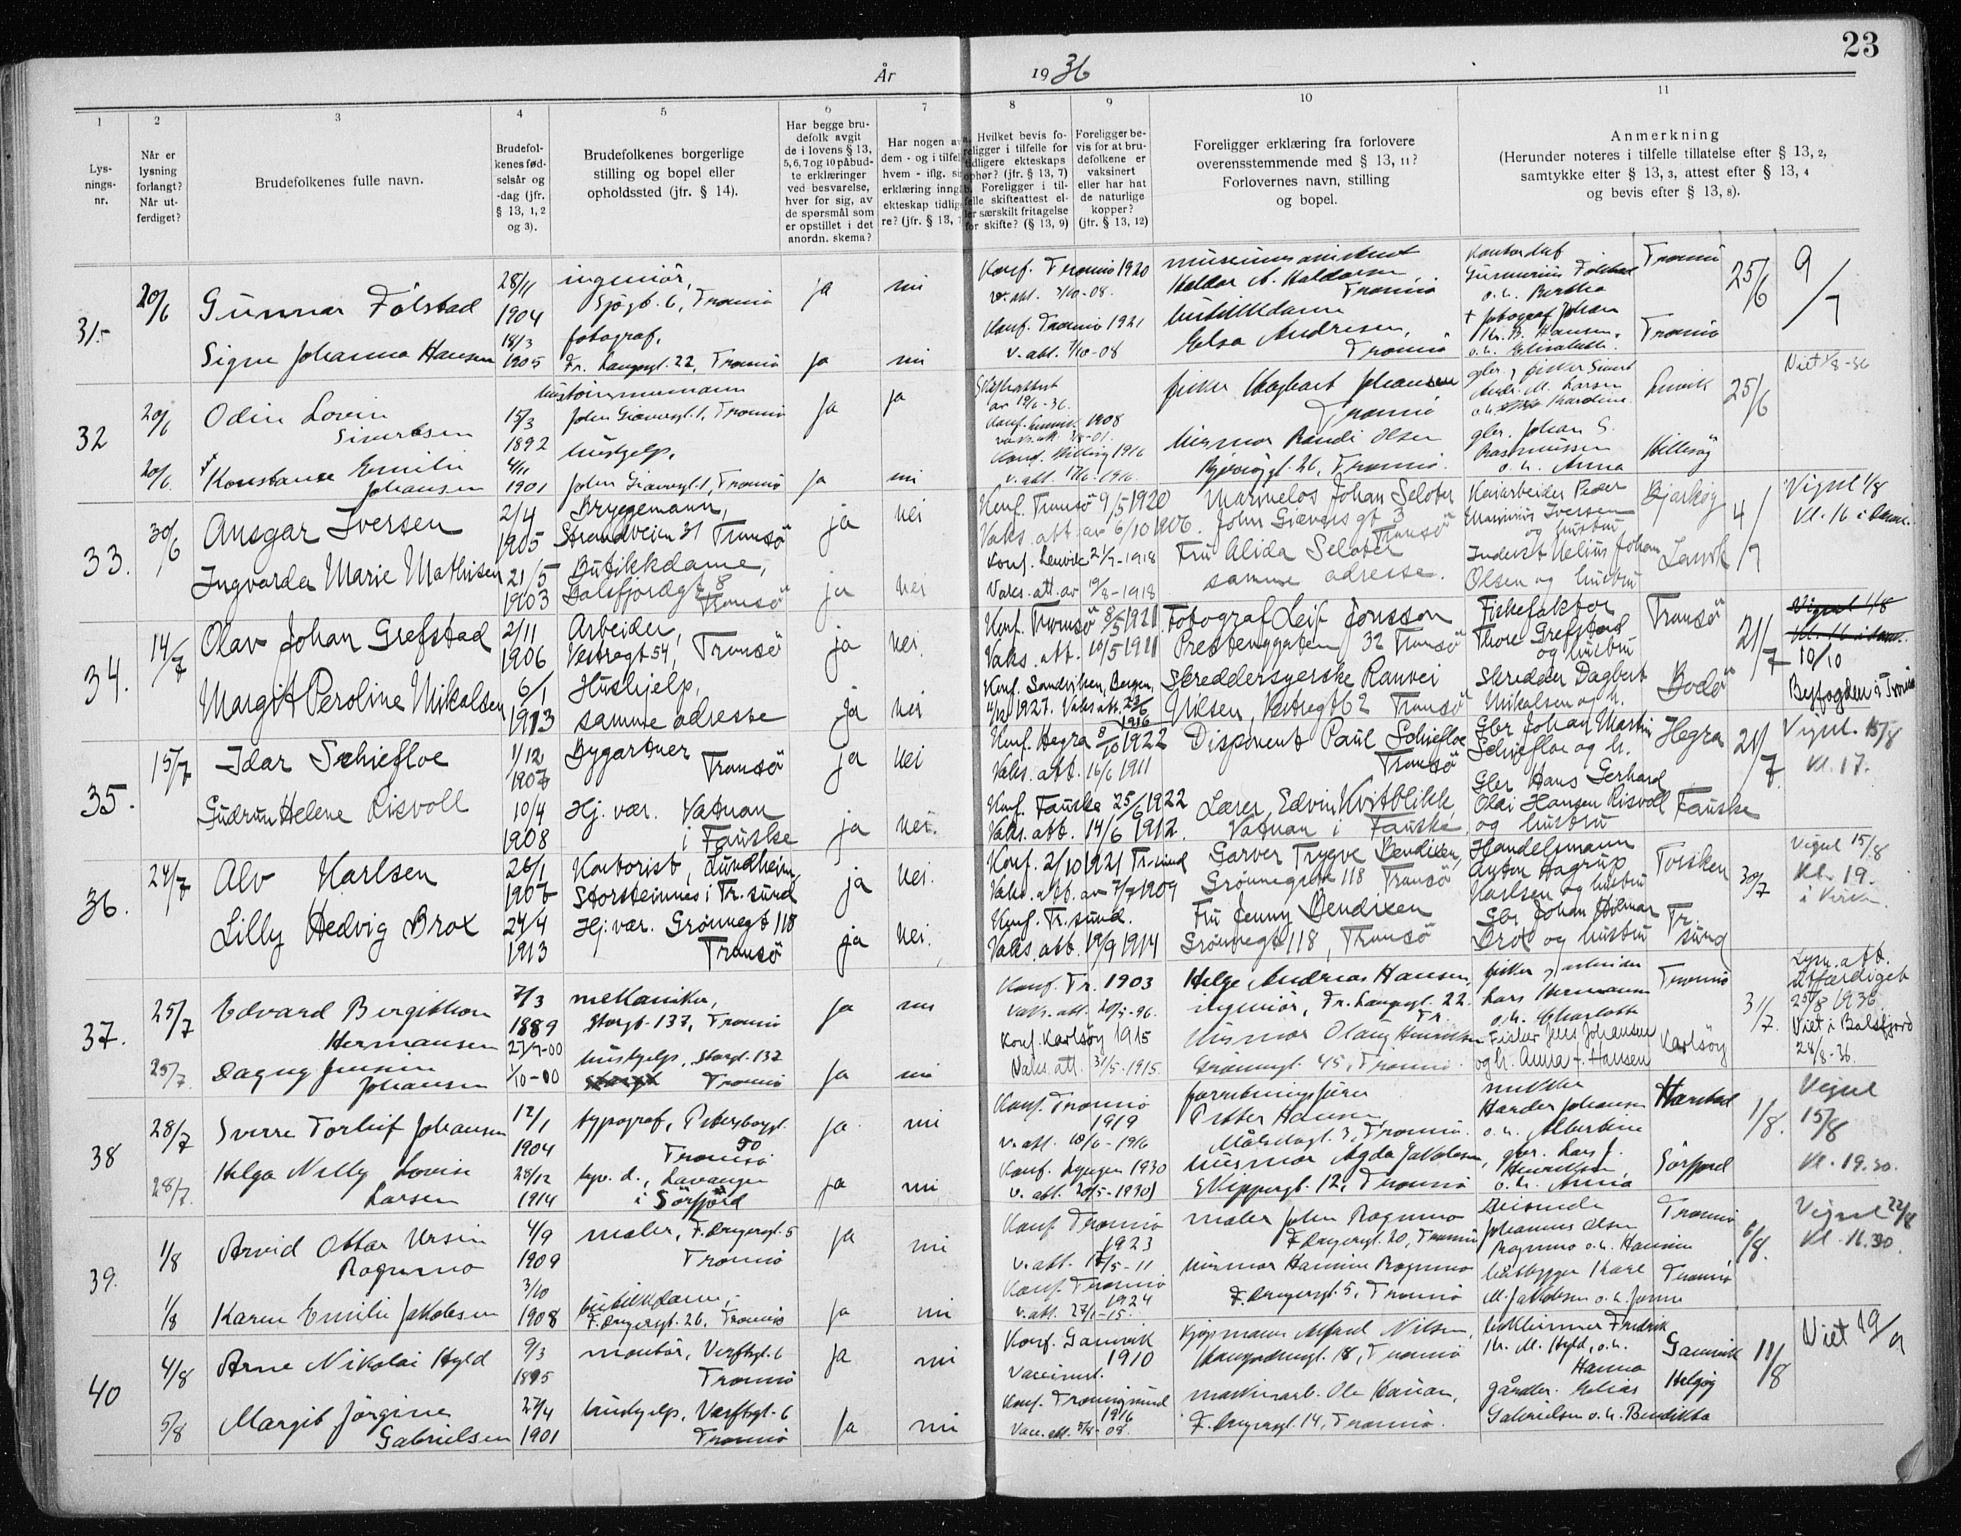 23
År 1936
1 2 3 4 5 6 7 8 9 10 11
Lys-
nings-
nr.
Når er
lysning
forlangt?
Når ut-
ferdiget?
Brudefolkenes fulle navn.
Brudefol-
kenes fød-
selsår og
-dag (jfr.
§ 13, 1, 2
og 3).
Brudefolkenes borgerlige
stilling og bopel eller
opholdssted (jfr. § 14).
Har begge bru-
defolk avgit
de i lovens § 13,
5, 6, 7 og 10 påbud-
te erklæringer
ved besvarelse,
hver for sig, av
de spørsmål som
er opstillet i det
anordn. skema?
Har nogen av
dem - og i tilfel
hvem - iflg. s
erklæring inng
ekteskap tidlig
re? (jfr. § 13, 7
Hvilket bevis fo-
religger i tilfelle for
tidligere ekteskaps
ophør? (jfr. § 13, 7)
Foreligger i til-
felle skifteattest el-
ler særskilt fritagelse
for skifte? (§ 13, 9)
Foreligger be-
vis for at bru-
defolkene er
vaksinert
eller har hat
de naturlige
kopper?
(jfr. § 13, 12)
Foreligger erklæring fra forlovere
overensstemmende med § 13, 11?
Forlovernes navn, stilling
og bopel.
Anmerkning
(Herunder noteres i tilfelle tillatelse efter § 13, 2,
samtykke efter § 13, 3, attest efter § 13, 4
og bevis efter § 13, 8).
31. 20/6 Gunnar Fölstad 28/11 1904 ingeniör, Sjögt. 6, Tromsö ja nei
Konf. Tromsö 1920 v. att. 7/10-08. museumsassistent Haldor Tromsö
Tromsö 25/6 9/7
Signe Johanna Hansen 18/3 1905 fotograf, Fr. Langesgt. 22, Tromsö ja nei
Konf. Tromsö 1921 v. att. 7/10-08 butikkdame Elsa Andresen, Tromsö
+ fotograf Johan Hansen o. h. Elisabeth Tromsö
32 20/6 Odin Lovin Sivertsen 15/3 1892 John Giæversgt. 1, Tromsö ja ja
Skifteattest av 19/6-36. 1908 fisker Hagbart Johansen Tromsö
gbr. og fisker Sivert Larsen Karoline Lenvik 25/6 Viet 1/8-36
20/6 Konstanse Emilie Johansen 4/11 1901 hushjelp, John Giæversgt. 1, Tromsö ja nei
Konf. Hillesøy 1916 v. att. 17/6-1916. husmor Randi Olsen 26, Tromsö.
gbr. Johan S. Rasmussen o. h. Anna Hillesøy
33. 30/6 Ansgar Iversen 2/4 1905 Bryggemann, Strandveien 31 Tromsö ja nei
Konf. Tromsö 9/5 1920 Vaks. att. av 6/10 1906. Johan Seloter John Giævers gt 3 Tromsö
Kaiarbeider Peder Iversen og hustru Bjarköy 4/7 Vigsel 1/8 Kl. 16 i
Ingvarda Marie Mathisen 21/5 1903 Butikkdame, Balsfjordgt 8 Tromsö ja nei
Konf. Lenvik 21/7-1918 Vaks. att. av 19/8-1918 Fru Alida Seloter samme adresse.
Inderst Nelius Johan Olsen og hustru Lenvik
34. 14/7 Olav Johan Grefstad 2/11 1906 Arbeider, Vestregt 54, Tromsö ja nei.
Konf. Tromsö 8/5 1921. Vaks. att. 10/5 1911 Fotograf Leif Jonsson Prestenggaten 32 Tromsö
Fiskefaktor Thore Grefstad og hustru Tromsö 21/7 Vigsel 1/8 Kl. 16 i 10/10 Byfogden i Tromsö
Margit Peroline Nikolsen 6/1 1913 Hushjelp, samme adresse ja nei
Konf. Sandviken, Bergen, 1927. Vaks. att. 23/6 1916 Skreddersyerske Ranvei Nilsen, Vestregt 62 Tromsö
Skredder Dagbert Nikolsen og h. Bodö
35. 15/7 Idar Schiefloe 1/12 1907 Bygartner Tromsö ja nei
Konf. Hegra 8/10 1922 Vaks. att. 16/6 1911 Disponent Paul Schiefloe Tromsö
Gbr Johan Martin Schiefloe og h. Hegra 21/7. Vigsel. 15/8 Kl. 17.
Gudrun Helene Risvoll 10/4 1908 Hj. vær. Vatnan i Fauske ja nei.
Konf. Fauske 25/6 1922 Vaks. att. 14/6 1912. Lærer Edvin Kvitblikk Vatnan i Fauske
Gbr Hans Gerhard Olai Hansen Risvoll og hustru Fauske
36. 24/7 Alv Karlsen 26/1 1907 Kontorist, Lundheim, Storsteinnes i Tr. sund ja nei.
Konf. 2/10 1921 Tr. sund Vaks. att. av 7/9 1909 Garver Trygve Bendixen, Grönnegate 118 Tromsö
Handelsmann Anton Hagrup Karlsen og hustru Torsken 30/7 Vigsel 15/8 Kl. 19. i Kirken
Lilly Hedvig Brox 24/4 1913 Hj. vær. Grönnegt 118 Tromsö ja nei.
Konf. Tr. sund. Vaks. att. 19/9 1914 Fru Jenny Bendixen Grönnegt 118, Tromsö
Gbr Johan Hilmar Brox og hustru Tr. sund
37. 25/7 Edvard Bergithon Hermansen 7/3 1889 mekaniker, Storgt. 137, Tromsö ja nei
Konf. Tr. 1903 Vaks. att. 20/5-96. Helge Andreas Hansen, ingeniör, Fr. Langesgt. 22. Tr.
fisker og arbeider Lars Hermann o. h. Charlotte Tromsö 31/7. Lysn. att. utferdiget 25/8 1936. Viet i Balsfjord 28/8-36.
25/7. Dagny Jensine Johansen 27/9-00 1/10-00 hushjelp, Storgt. 137 Tromsö ja nei
Konf. Karlsöy 1915 Vaks. att. 31/5-1915. husmor Olaug Henriksen Grönnegt. 45, Tromsö.
Fisker Jens Johansen og h. Anna f. Hansen Karlsöy
38 28/7 Sverre Torleif Johansen 12/1 1904 typograf, Petersborggt. 20 Tromsö ja. nei
Konf. Tromsö 1919 v. att. 10/6-1916 forretningsfører Petter Hansen 3, Tromsö.
Harder Johansen o. h. Albertine Harstad 1/8. Vigsel 15/8 Kl. 19.30.
28/7. Helga Nelly Lovise Larsen 28/12 1914 Lavangen i Sörfjord ja nei
Konf. Lyngen 1930 v. att. 20/5-1930 husmor Agda Jakobsen, Skippergt. 12, Tromsö
gbr. Lars J. Henriksen, o. h. Anna Sörfjord
39. 1/8 Arvid Ottar Ursin Rognmo 4/9 1909 maler, 5 Tromsö ja nei
Konf. Tromsö 1923 v. att. 19/5-11 maler John Rognmo 20, Tromsö
Johannes Olsen Rognmo o. h. Hansine Tromsö 6/8. Vigsel 22/8 Kl. 16.30.
1/8 Karen Emilie Jakobsen 3/10 1908 butikkdame, 26, Tromsö ja nei
Konf. Tromsö 1924 v. att. 27/9-15. husmor Hansine Rognmo 5, Tromsö
båtbygger Karl M. Jakobsen o. h. Tromsö
40 4/8 Arne Nikolai Hyld 9/3 1895 montör, Verftsgt. 6 Tromsö ja nei
Konf. Gamvik 1910 Vaccinert. kjøpmann Alfred Nilsen, 18, Tromsö
Fredrik Kr. M. Hyld, o. h. Hanna Gamvik 11/8 Viet 19/9
5/8 Margit Jörgine Gabrielsen 27/4 1901 hushjelp, Verftsgt. 6 Tromsö ja nei
Konf. Tromsøysund 1916 Vacc. att. 5/8-08. maskinarb. Ole 14, Tromsö.
Elias Gabrielsen o. h. Bendikta Helgøy